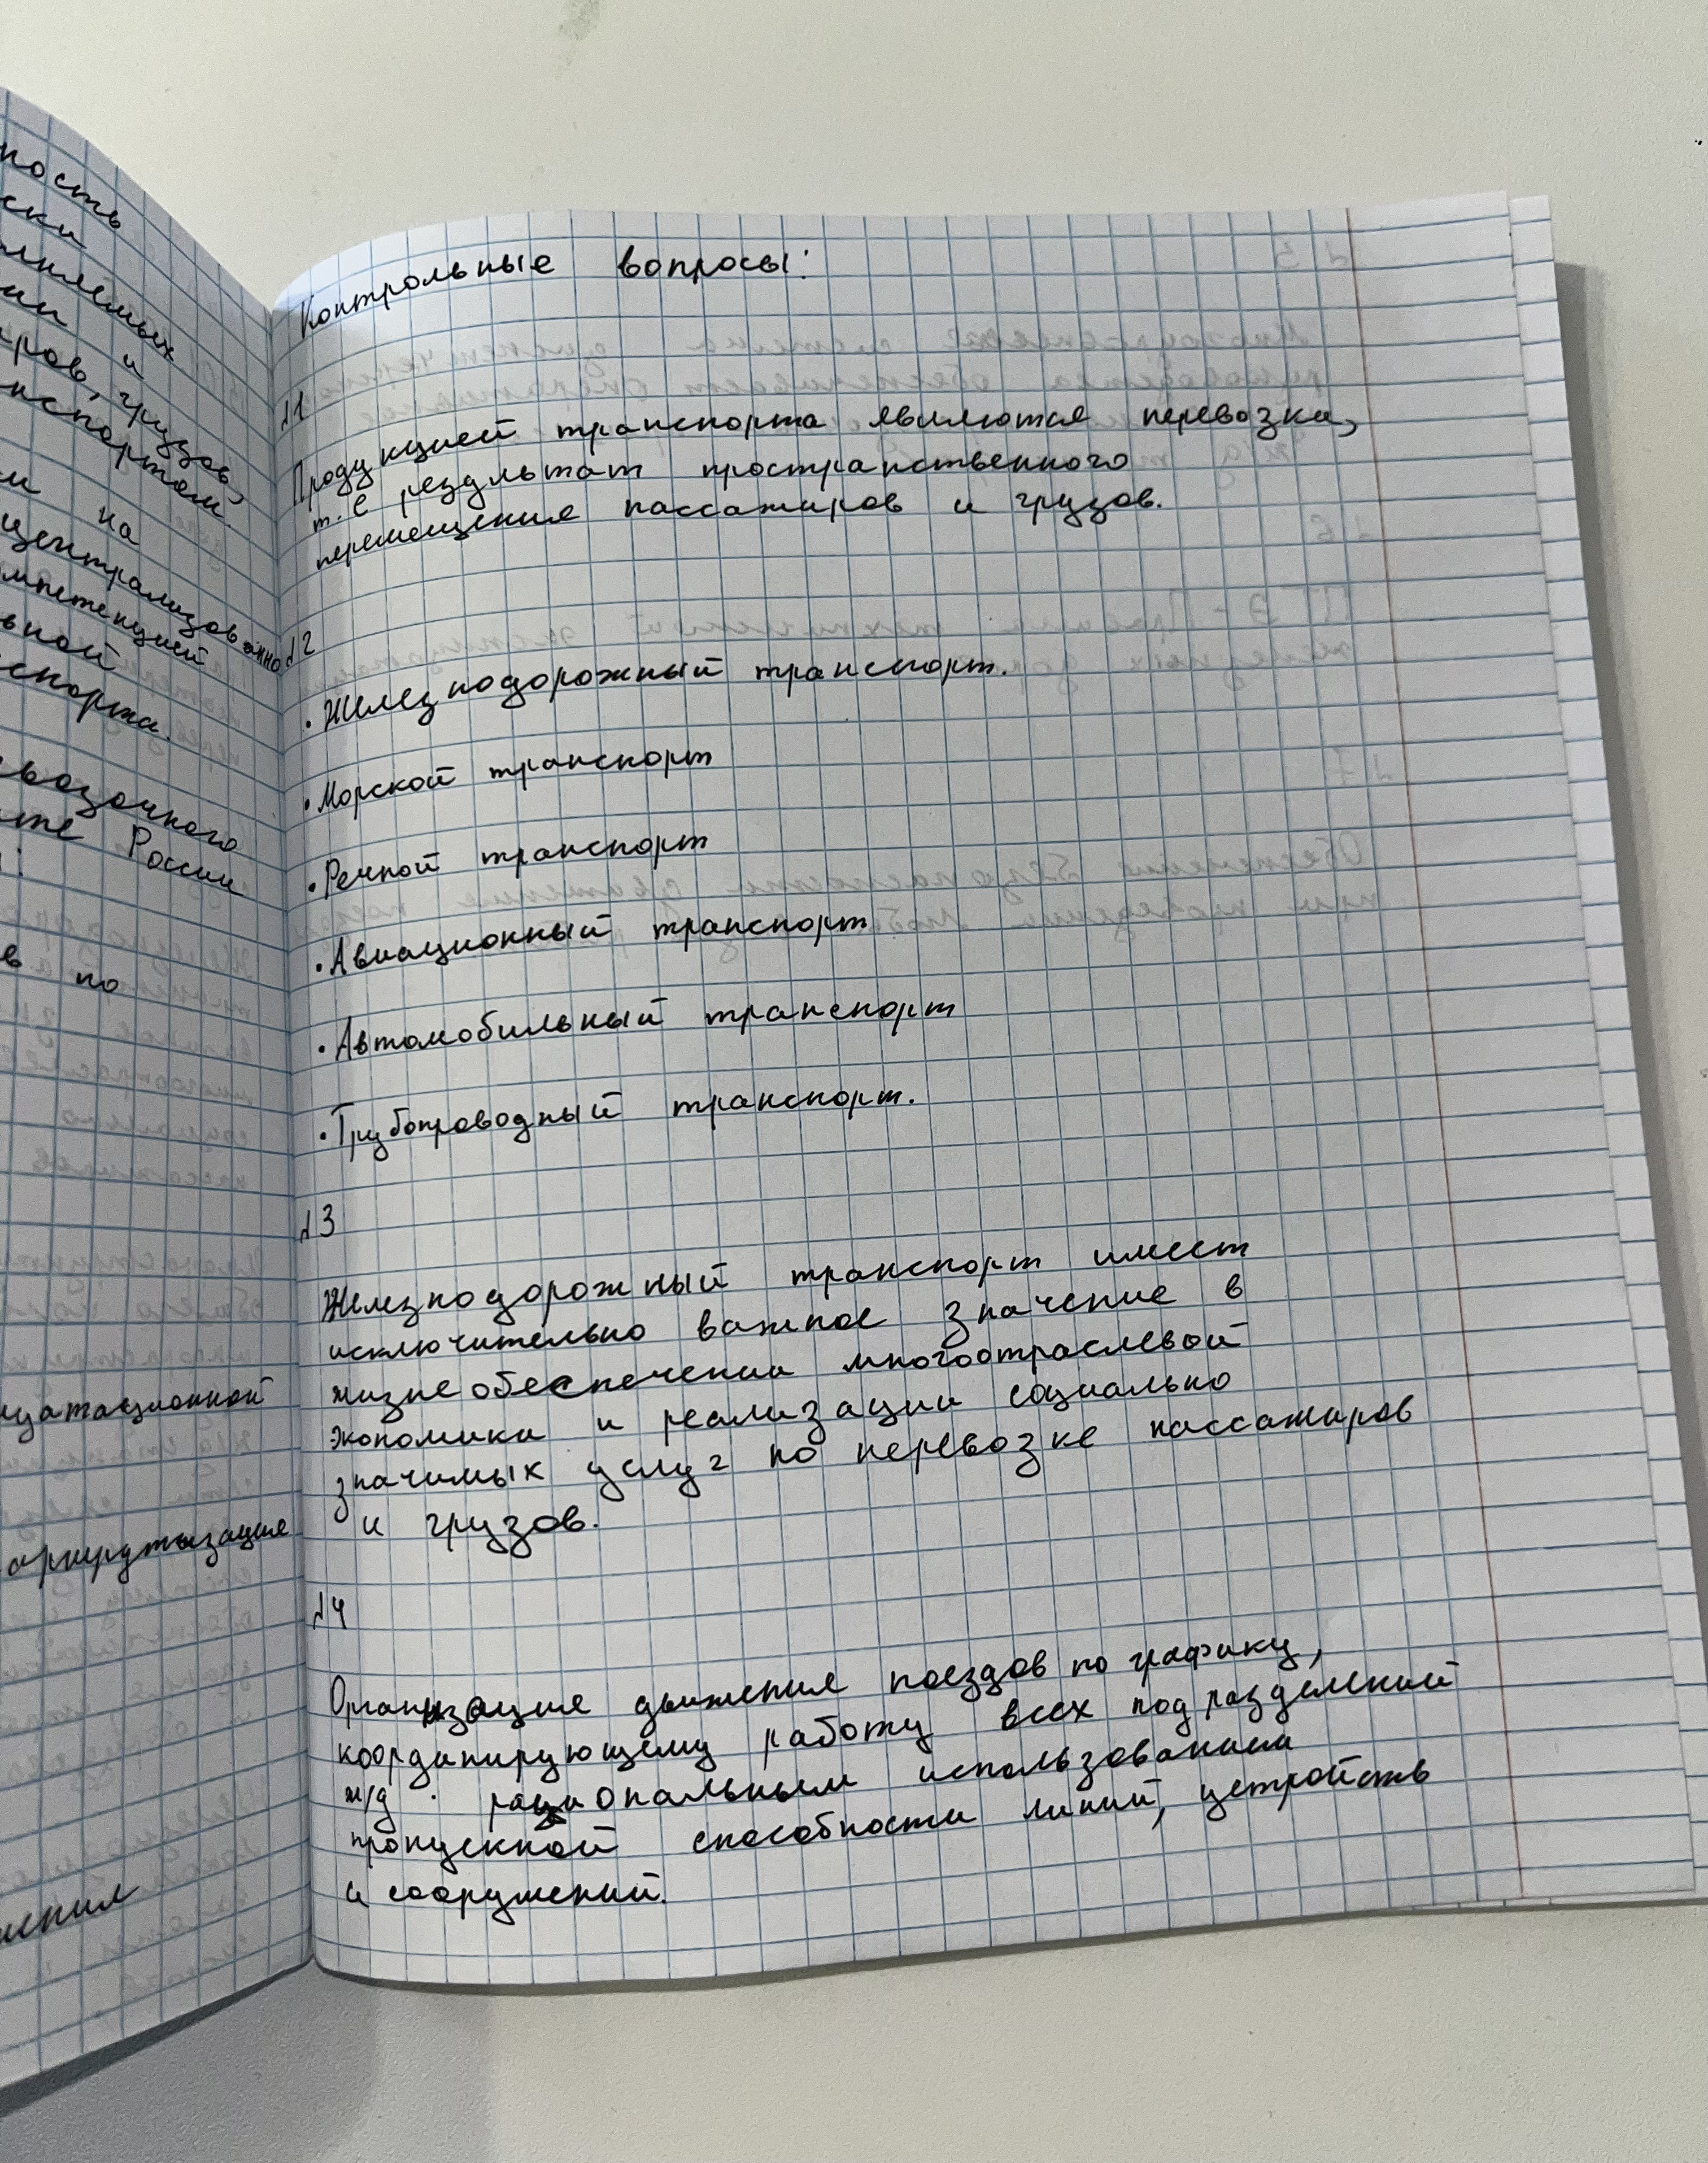 ность
ски
ии и
грузов,
нспортом.
и на
централизованно
мпетенцией
вной
спорта.
возочного
те России
в по
уатационной
Контрольные вопросы:
№1
Продукцией транспорта являются перевозки,
т.е результат пространственного
перемещения пассажиров и грузов.
№2
• Железнодорожный транспорт.
• Морской транспорт
• Речной транспорт
• Авиационный транспорт
• Автомобильный транспорт
• Трубопроводный транспорт.
№3
Железнодорожный транспорт имеет
исключительно важное значение в
жизнеобеспечении многоотраслевой
экономики и реализации социально
значимых услуг по перевозке пассажиров
и грузов.
№4
Организация движения поездов по графику,
координирующему работу всех подразделений
ж/д. рациональным использованием
пропускной способности линий, устройств
и сооружений.